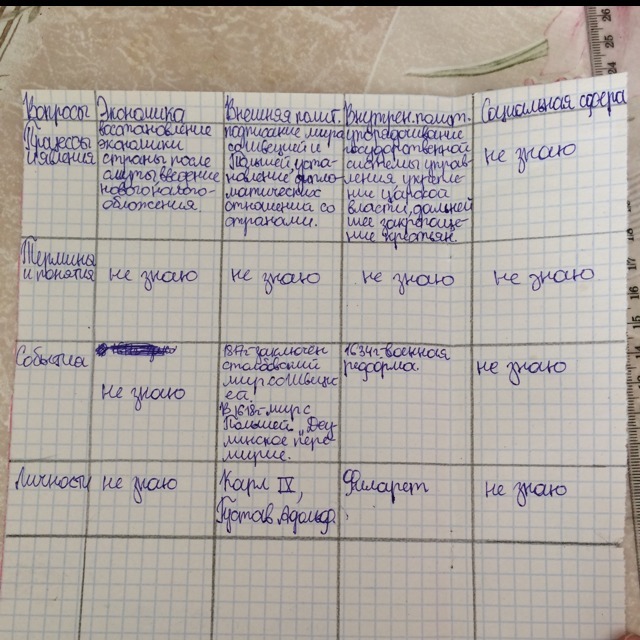 Вопросы
Экономика
Внешняя полит.
Внутрен. полит.
Социальная сфера
Процессы
и явления
восстановление
экономики
страны после
смуты, введение
нового налого-
обложения.
подписание мира
со Швецией и
Польшей, уста-
новление дипло-
матических
отношения со
странами.
упорядочивание
государственной
системы управ-
ления укрепле-
ние царской
власти, дальней
шее закрепоще-
ние крестьян.
не знаю
Термины
и понятия
не знаю
не знаю
не знаю
не знаю
События
не знаю
заключен
столбовский
мир со Швеци
ей.
В 1618г. мир с
Польшей "Деу
линское пере-
мирие.
1634г-военная
реформа.
не знаю
Личности
не знаю
Карл IX,
Густав Адольф.
Филарет
не знаю
26
25
24
18
17
16
15